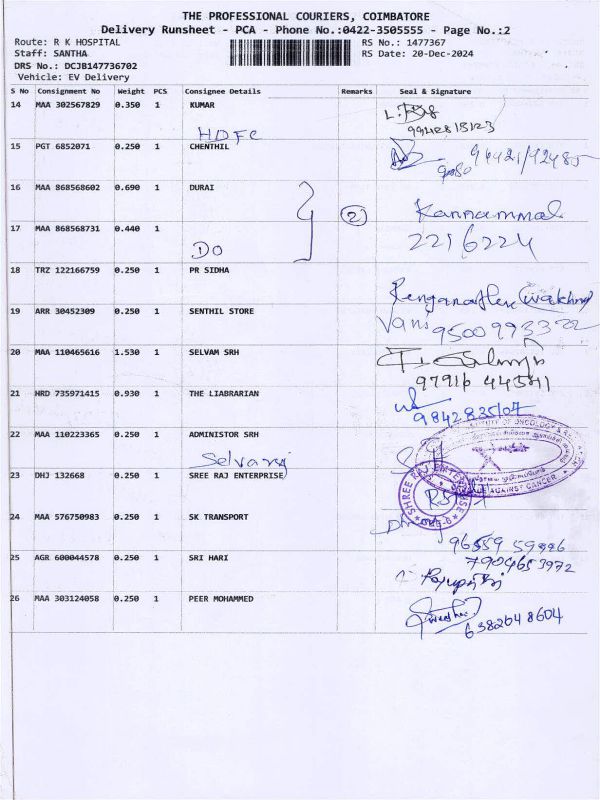 THE PROFESSIONAL COURIERS, COIMBATORE
Delivery Runsheet - PCA - Phone No.:0422-3505555 - Page No.:2
Route: R K HOSPITAL
RS No.: 1477367
Staff: SANTHA
RS Date: 20-Dec-2024
DRS No.: DCJB147736702
Vehicle: EV Delivery
S No Consignment No Weight PCS Consignee Details Remarks Seal & Signature
14 MAA 302567829 0.350 1 KUMAR
HDFC
9942818123
15 PGT 6852071 0.250 1 CHENTHIL
16 MAA 868568602 0.690 1 DURAI
2
Kannammal
17 MAA 868568731 0.440 1
2216224
DO
18 TRZ 122166759 0.250 1 PR SIDHA
19 ARR 30452309 0.250 1 SENTHIL STORE
Vani
20 MAA 110465616 1.530 1 SELVAM SRH
97916 44541
21 HRD 735971415 0.930 1 THE LIABRARIAN
9842835107
22 MAA 110223365 0.250 1 ADMINISTOR SRH
Selvaraj
AGAINST CANCER
23 DHJ 132668 0.250 1 SREE RAJ ENTERPRISE
SHREE RAJ ENTERPRISE
24 MAA 576750983 0.250 1 SK TRANSPORT
25 AGR 600044578 0.250 1 SRI HARI
7904653972
26 MAA 303124058 0.250 1 PEER MOHAMMED
6382648604